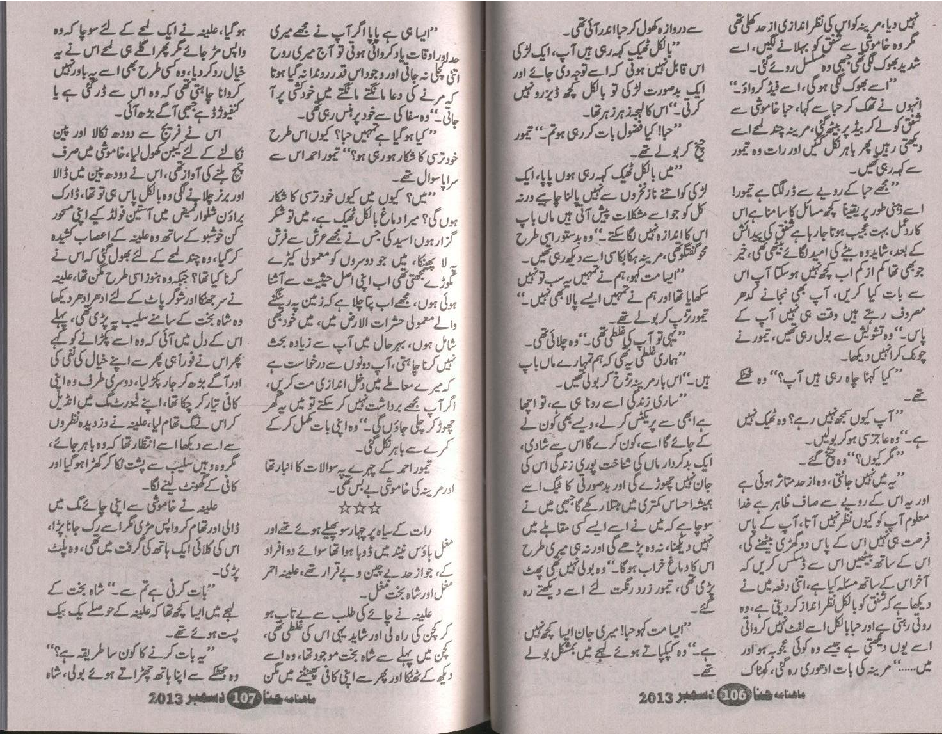 نہیں دیا، مرینہ کو اس کی نظر اندازی از حد کھلی تھی
مگر وہ خاموشی سے شفق کو بہلانے لگیں، اسے
شدید بھوک لگی تھی جبھی وہ مسلسل روئے گئی۔
”اسے بھوک لگی ہوئی، اسے فیڈ کرواؤ۔“
انہوں نے تھک کر حبا سے کہا، حبا خاموشی سے
شفق کو لے کر بیڈ پر بیٹھ گئی، مرینہ چند لمحے اسے
دیکھتی رہیں پھر باہر نکل گئیں اور رات وہ تیمور
سے کہہ رہی تھیں۔
”مجھے حبا کے رویے سے ڈر لگتا ہے تیمور!
اسے ذہنی طور پر یقیناً کچھ مسائل کا سامنا ہے اس
کا ردعمل بہت عجیب ہوتا جا رہا ہے شفق کی پیدائش
کے بعد، شاید وہ بیٹے کی امید لگائے بیٹھی تھی، خیر
جو بھی تھا کم از کم اب کچھ نہیں ہو سکتا آپ اس
سے بات کیا کریں، آپ بھی نجانے کدھر
مصروف رہتے ہیں وقت ہی نہیں آپ کے
پاس۔“ وہ تشویش سے بول رہی تھیں، تیمور نے
چونک کر انہیں دیکھا۔
”کیا کہنا چاہ رہی ہیں آپ؟“ وہ ٹھٹکے
تھے۔
”آپ کیوں سمجھ نہیں رہے؟ وہ ٹھیک نہیں
ہے۔“ وہ عاجز سی ہو کر بولیں۔
”مگر کیوں؟“ وہ چیخ گئے۔
”یہ میں نہیں جانتی، وہ از حد متاثر ہوئی ہے
اور یہ اس کے رویے سے صاف ظاہر ہے خدا
معلوم آپ کو کیوں نظر نہیں آتا، آپ کے پاس
فرصت ہی نہیں اس کے پاس دو گھڑی بیٹھنے کی،
اس کے ساتھ بیٹھیں اس سے ڈسکس کریں کہ
آخر اس کے ساتھ مسئلہ کیا ہے، اتنی دفعہ میں نے
دیکھا ہے کہ شفق کو بالکل نظر انداز کر دیتی ہے، وہ
روتی رہتی ہے اور حبا بالکل اسے لفٹ نہیں کرواتی
اسے یوں دیکھتی ہے جیسے وہ کوئی عجوبہ ہو اور
میں.....“ مرینہ کی بات ادھوری رہ گئی، کھٹاک
سے دروازہ کھول کر حبا اندر آئی تھی۔
”بالکل ٹھیک کہہ رہی ہیں آپ، ایک لڑکی
اس قابل نہیں ہوتی کہ اسے توجہ دی جائے اور
ایک بدصورت لڑکی تو بالکل کچھ ڈیزرو نہیں
کرتی۔“ اس کا لہجہ زہر زہر تھا۔
”حبا! کیا فضول بات کر رہی ہو تم۔“ تیمور
چیخ کر بولے تھے۔
”میں بالکل ٹھیک کہہ رہی ہوں پاپا، ایک
لڑکی کو اتنے ناز نخروں سے نہیں پالنا چاہیے ورنہ
کل کو جو اسے مشکلات پیش آتی ہیں ماں باپ
اس کا اندازہ نہیں لگا سکتے۔“ وہ بدستور اسی طرح
محو گفتگو تھی، مرینہ ہکا بکا سی اسے دیکھ رہی تھیں۔
”ایسا مت کہو ہم نے تمہیں یہ سب تو نہیں
سکھایا تھا اور ہم نے تمہیں ایسے پالا بھی نہیں۔“
تیمور تڑپ کر بولے تھے۔
”یہی تو آپ کی غلطی تھی۔“ وہ چلائی تھی۔
”ہماری غلطی یہ تھی کہ ہم تمہارے ماں باپ
ہیں۔“ اس بار مرینہ تڑخ کر بولی تھیں۔
”ساری زندگی اسے رونا ہی ہے، تو اچھا
ہے ابھی سے پریکٹس کر لے، ویسے بھی کون لے
کے جائے گا اسے، کون کرے گا اس سے شادی،
ایک بدکردار ماں کی شناخت پوری زندگی اس کی
جان نہیں چھوڑے گی اور بدصورتی کا فیکٹ اسے
ہمیشہ احساس کمتری میں مبتلا رکھے گا جبھی میں نے
سوچا ہے کہ میں نے اسے ایسی کسی مقابلے میں
نہیں دیکھنا، نہ وہ پڑھے گی اور نہ ہی میری طرح
اس کا دماغ خراب ہو گا۔“ وہ بولی نہیں تھی پھٹ
پڑی تھی، تیمور زرد رنگت لئے اسے دیکھتے رہ
گئے۔
”ایسا مت کہو حبا! میری جان ایسا کچھ نہیں
ہے۔“ وہ کپکپاتے ہوئے لہجے میں بمشکل بولے
تھے۔
ماهنامه حنا 106 دسمبر 2013
”ایسا ہی ہے پاپا اگر آپ نے مجھے میری
حد اور اوقات یاد کروائی ہوتی تو آج میری روح
اتنی کچلی نہ جاتی اور وجود اس قدر روندا نہ گیا ہوتا
کہ مرنے کی دعا مانگتے مانگتے میں خودکشی پر آ
جاتی۔“ وہ سفاکی سے خود پر ہنس رہی تھی۔
”کیا ہو گیا ہے تمہیں حبا؟ کیوں اس طرح
خود ترسی کا شکار ہو رہی ہو؟“ تیمور احمد اس سے
سراپا سوال تھے۔
”میں؟ کیوں میں کیوں خود ترسی کا شکار
ہوں گی؟ میرا دماغ بالکل ٹھیک ہے، میں تو شکر
گزار ہوں اسید کی جس نے مجھے عرش سے فرش
لا پھینکا، میں جو دوسروں کو معمولی کیڑے
مکوڑے سمجھتی تھی اب اپنی اصل حیثیت سے آشنا
ہوئی ہوں، مجھے اب پتا چلا ہے کہ زمین پہ رینگنے
والے معمولی حشرات الارض میں، میں خود بھی
شامل ہوں، بہرحال میں آپ سے زیادہ بحث
نہیں کرنا چاہتی، آپ دونوں سے درخواست ہے
کہ میرے معاملے میں دخل اندازی مت کریں،
اگر آپ مجھے برداشت نہیں کر سکتے تو میں یہ گھر
چھوڑ کر چلی جاؤں گی۔“ وہ اپنی بات مکمل کر کے
کمرے سے باہر نکل گئی۔
تیمور احمد کے چہرے پہ سوالات کا انبار تھا
اور مرینہ کی خاموشی بے بس تھی۔
☆☆☆
رات کے سیاہ پر چہار سو پھیلے ہوئے تھے اور
مغل ہاؤس نیند میں ڈوبا ہوا تھا سوائے دو افراد
کے، جو از حد بے چین و بے قرار تھے، علینہ احمر
مغل اور شاہ بخت مغل۔
علینہ نے چائے کی طلب سے بے تاب ہو
کر کچن کی راہ لی اور شاید یہی اس کی غلطی تھی،
کچن میں پہلے سے شاہ بخت موجود تھا، وہ اسے
دیکھ کے ٹھٹکا اور پھر سے اپنی کافی پھینٹنے میں مگن
ہو گیا، علینہ نے ایک لمحے کے لئے سوچا کہ وہ
واپس مڑ جائے مگر پھر اگلے ہی لمحے اس نے یہ
خیال رد کر دیا، وہ کسی طرح بھی اسے یہ باور نہیں
کروانا چاہتی تھی کہ وہ اس سے ڈر گئی ہے یا
کنفیوژڈ ہے جبھی آگے بڑھ آئی۔
اس نے فریج سے دودھ نکالا اور پین
نکالنے کے لئے کیبن کھول لیا، خاموشی میں صرف
چمچ ہلنے کی آواز تھی، اس نے دودھ پین میں ڈالا
اور برنر جلانے لگی وہ بالکل پاس ہی تو تھا، ڈارک
براؤن شلوار قمیض میں آستین فولڈ کیے اپنی مسحور
کن خوشبو کے ساتھ وہ علینہ کے اعصاب کشیدہ
کر گیا، وہ چند لمحے کے لئے بھول گئی کہ اس نے
کرنا کیا تھا؟ جبکہ وہ ہنوز اسی طرح مگن تھا، علینہ
نے سر جھٹکا اور شوگر پاٹ کے لئے ادھر ادھر دیکھا
وہ شاہ بخت کے سامنے سلیب پہ پڑی تھی، پہلے
اس کے دل میں آئی کہ وہ اسے پکڑانے کو کہے
پھر اس نے فوراً ہی پھر سے اپنے خیال کی نفی کی
اور آگے بڑھ کر جار پکڑ لیا، دوسری طرف وہ اپنی
کافی تیار کر چکا تھا، اپنے فیورٹ مگ میں انڈیل
کر اس نے مگ تھام لیا، علینہ نے دزدیدہ نظروں
سے اسے دیکھا اسے انتظار تھا کہ وہ باہر جائے،
مگر وہ وہیں سلیب سے پشت لگا کر کھڑا ہو گیا اور
کافی کے گھونٹ لینے لگا۔
علینہ نے خاموشی سے اپنی چائے مگ میں
ڈالی اور تھام کر واپس مڑی مگر اسے رک جانا پڑا،
اس کی کلائی ایک ہاتھ کی گرفت میں تھی، وہ پلٹ
پڑی۔
”بات کرنی ہے تم سے۔“ شاہ بخت کے
لہجے میں ایسا کچھ تھا کہ علینہ کے حوصلے یک بیک
پست ہوئے تھے۔
”یہ بات کرنے کا کون سا طریقہ ہے؟“
وہ جھٹکے سے اپنا ہاتھ چھڑاتے ہوئے بولی، شاہ
ماهنامه حنا 107 دسمبر 2013